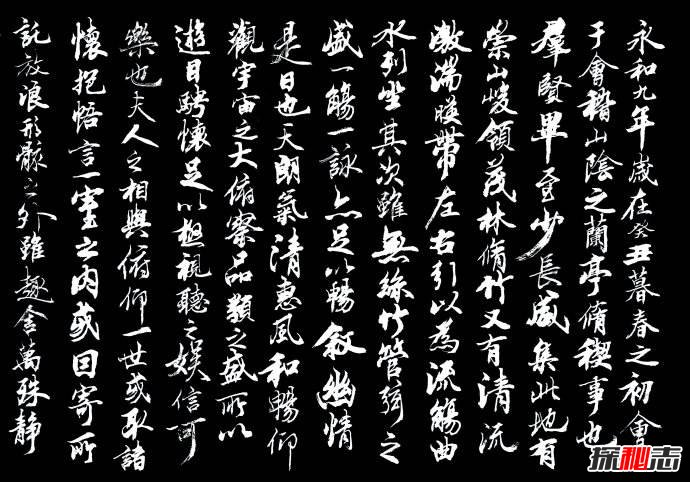 永和九年歲在癸丑暮春之初會
于會稽山陰之蘭亭脩稧事也
羣賢畢至少長咸集此地有
崇山峻領茂林脩竹又有清流
激湍暎帶左右引以為流觴曲
水列坐其次雖無絲竹管弦之
盛一觴一詠亦足以暢敘幽情
是日也天朗氣清惠風和暢仰
觀宇宙之大俯察品類之盛所以
遊目騁懷足以極視聽之娛信可
樂也夫人之相與俯仰一世或取諸
懷抱悟言一室之內或因寄所
託放浪形骸之外雖趣舍萬殊靜
探秘志